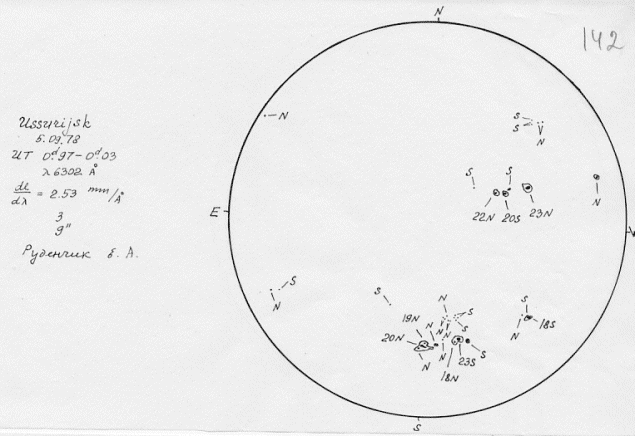 N
142
Ussurijsk
5.09.78
UT 0ᵈ.97-0ᵈ.03
λ 6302 Å
dl/dλ = 2.53 mm/Å
3
9"
Руденчик Е. А.
N
S
S
N
S
S
N
E
22N 20S 23N
W
S
N
S
N
S
19N
N
S
20N
N
N
N
S
N
18N
23S
S
S
18S
N
S